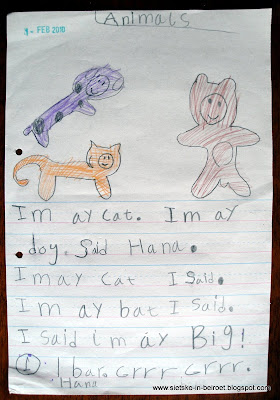 Animals
3- FEB 2010
Im ay cat. Im ay
dog. Said Hana.
Im ay cat I said.
Im ay bat I said.
I said im ay Big!
I bar. Grrr Grrr.
Hana
www.sietske-in-beiroet.blogspot.com